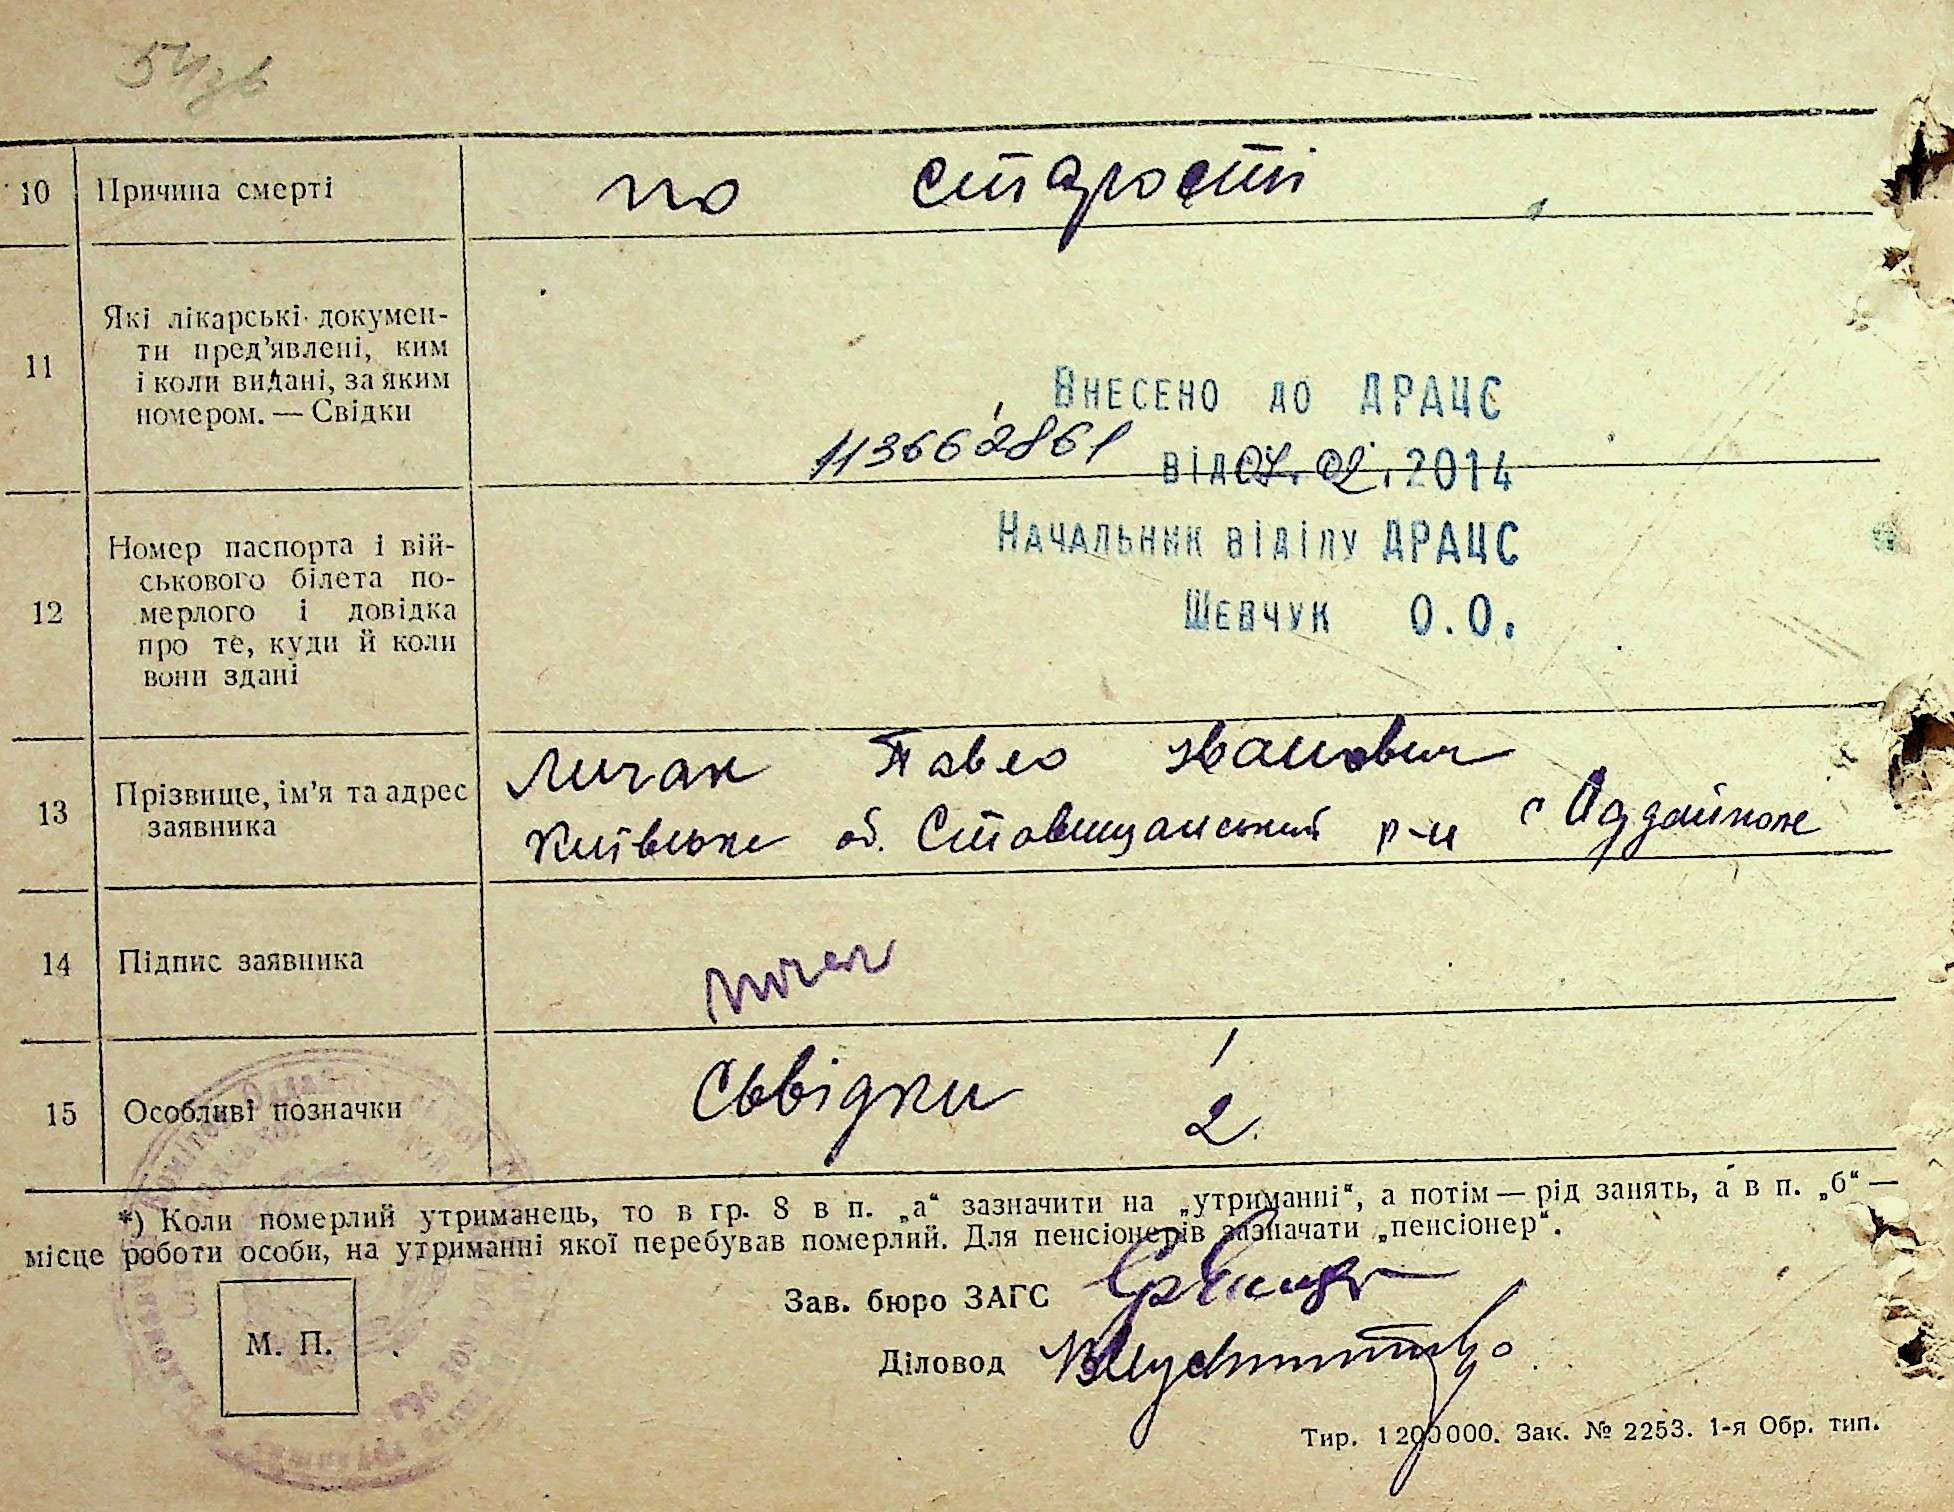 54зв
10 Причина смерті по старості
11 Які лікарські докумен-
ти пред'явлені, ким
і коли видані, за яким
номером. — Свідки
Внесено до ДРАЦС
113662861 від 07.02.2014
Начальник відділу ДРАЦС
Шевчук О.О.
12 Номер паспорта і вій-
ськового білета по-
мерлого і довідка
про те, куди й коли
вони здані
13 Прізвище, ім'я та адрес
заявника
Личак Павло Іванович
Київське об. Ставищанський р-н с
14 Підпис заявника Личак
15 Особливі позначки Сьвідки 1
2.
*) Коли померлий утриманець, то в гр. 8 в п. „а“ зазначити на „утриманні“, а потім — рід занять, а в п. „б“ —
місце роботи особи, на утриманні якої перебував померлий. Для пенсіонерів зазначати „пенсіонер“.
Зав. бюро ЗАГС
М. П.
Діловод
Тир. 1200000. Зак. № 2253. 1-я Обр. тип.